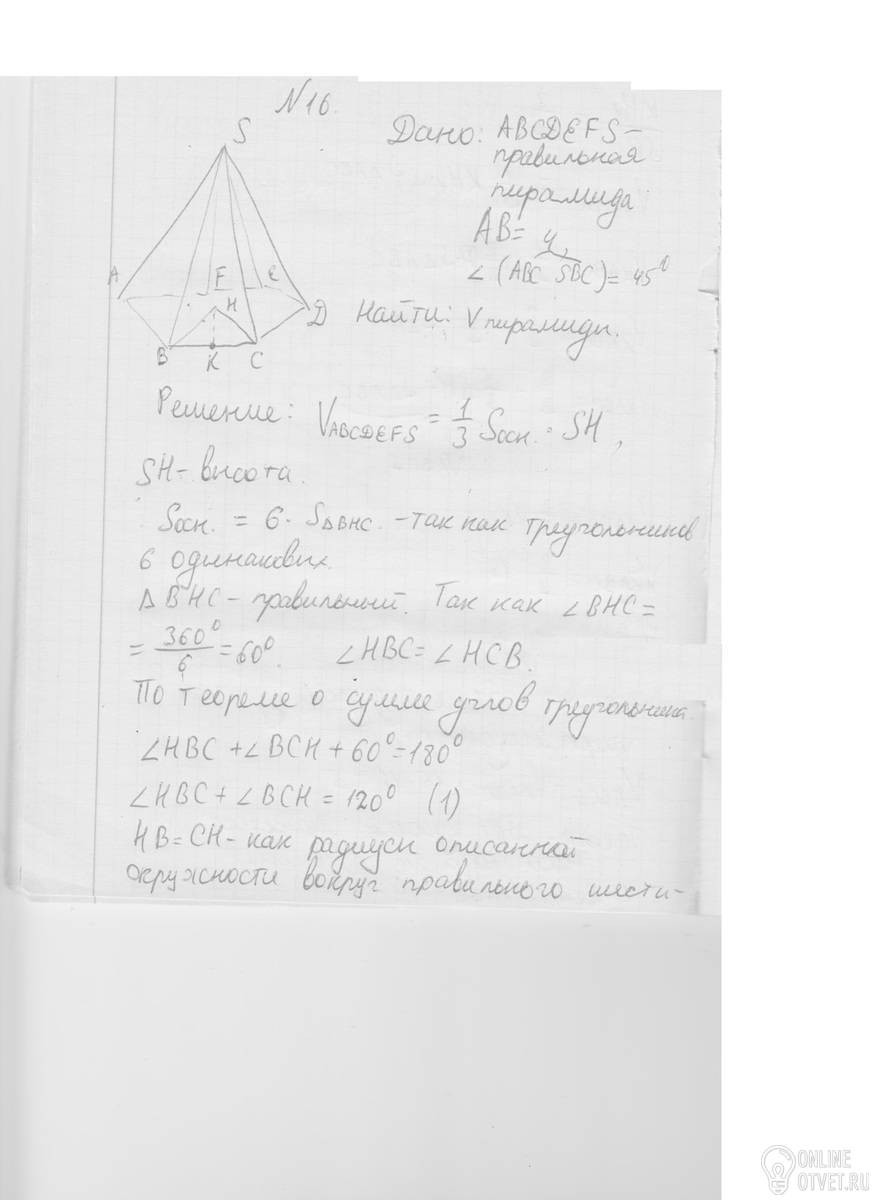 N16.
S
A
F
E
H
D
B
K
C
Дано: ABCDEFS –
правильная
пирамида
AB = 4,
∠(ABC SBC) = 45⁰
Найти: V пирамиды.
Решение: V ABCDEFS = 1/3 Sосн. · SH,
SH – высота.
Sосн. = 6 · S△BHC. – так как треугольников
6 одинаковых.
△ BHC – правильный. Так как ∠BHC =
= 360⁰/6 = 60⁰. ∠HBC = ∠HCB.
По теореме о сумме углов треугольника
∠HBC + ∠BCH + 60⁰ = 180⁰
∠HBC + ∠BCH = 120⁰ (1)
HB = CH – как радиусы описанной
окружности вокруг правильного шести-
ONLINE
OTVET.RU